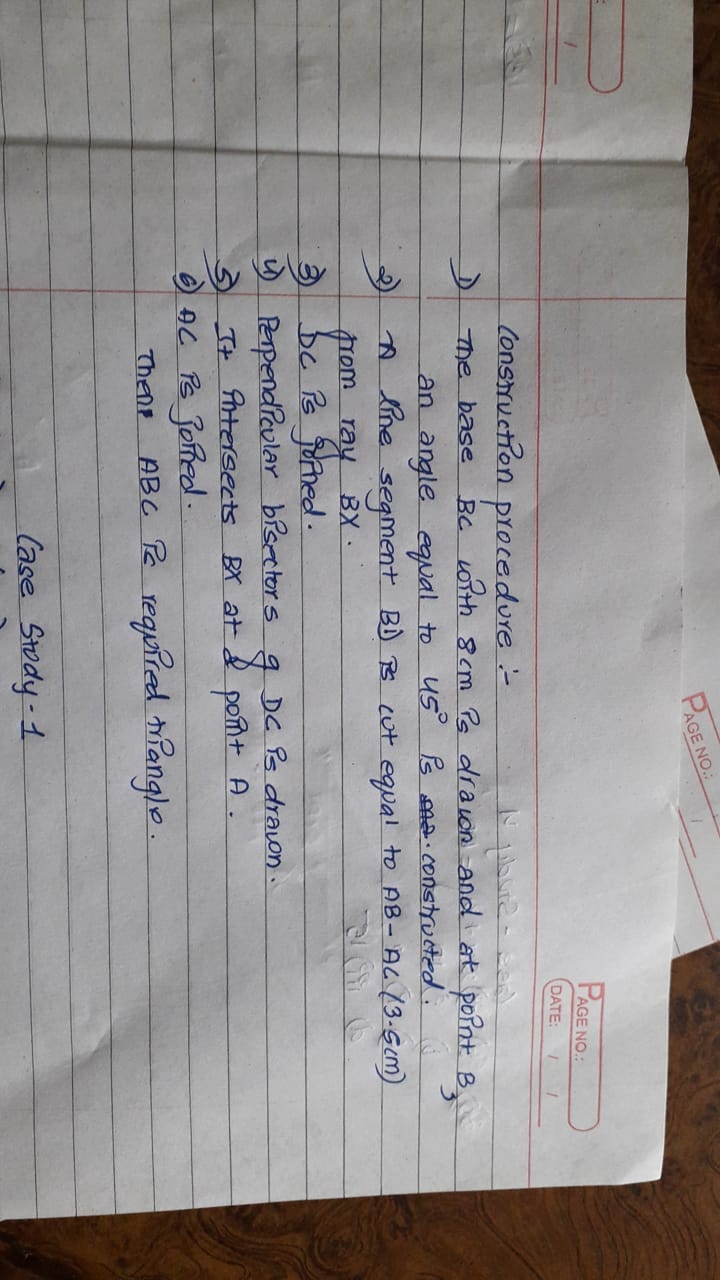 PAGE NO.:
PAGE NO.:
DATE: / /
Construction procedure :-
1) The base BC with 8cm is drawn and at point B,
an angle equal to 45° is constructed.
2) A line segment BD is cut equal to AB - AC (3.5cm)
from ray BX.
3) DC is joined.
4) Perpendicular bisectors of DC is drawn.
5) It intersects BX at point A.
6) AC is joined.
Then ABC is required triangle.
Case Study - 1